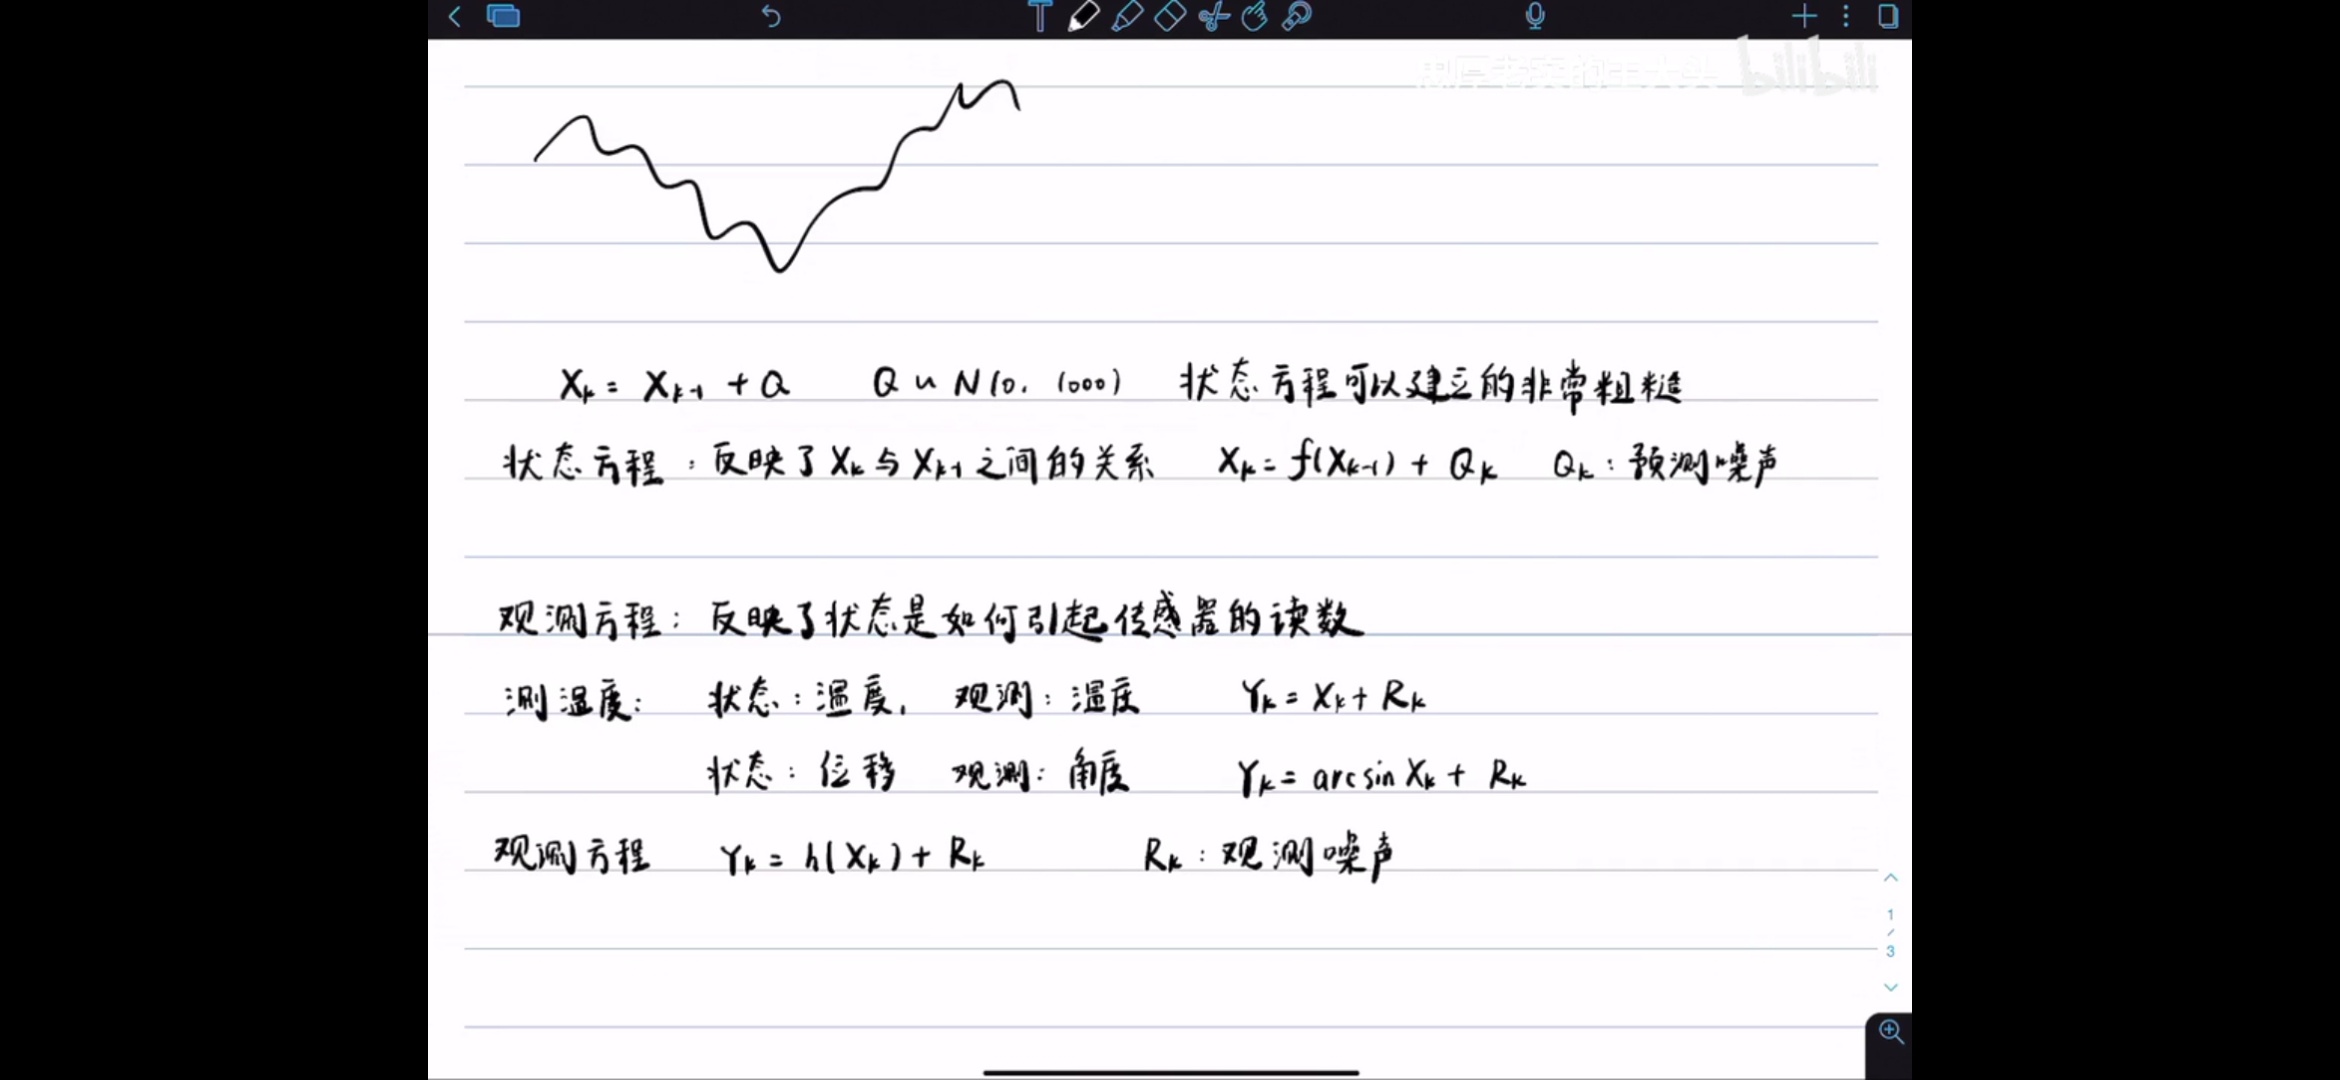 忠厚老实的王大头 bilibili
X_k = X_{k-1} + Q Q ~ N(0, 1000) 状态方程可以建立的非常粗糙
状态方程:反映了 X_k 与 X_{k-1} 之间的关系 X_k = f(X_{k-1}) + Q_k Q_k:预测噪声
观测方程:反映了状态是如何引起传感器的读数
测温度: 状态:温度, 观测:温度 Y_k = X_k + R_k
状态:位移 观测:角度 Y_k = arcsin X_k + R_k
观测方程 Y_k = h(X_k) + R_k R_k:观测噪声
1
/
3